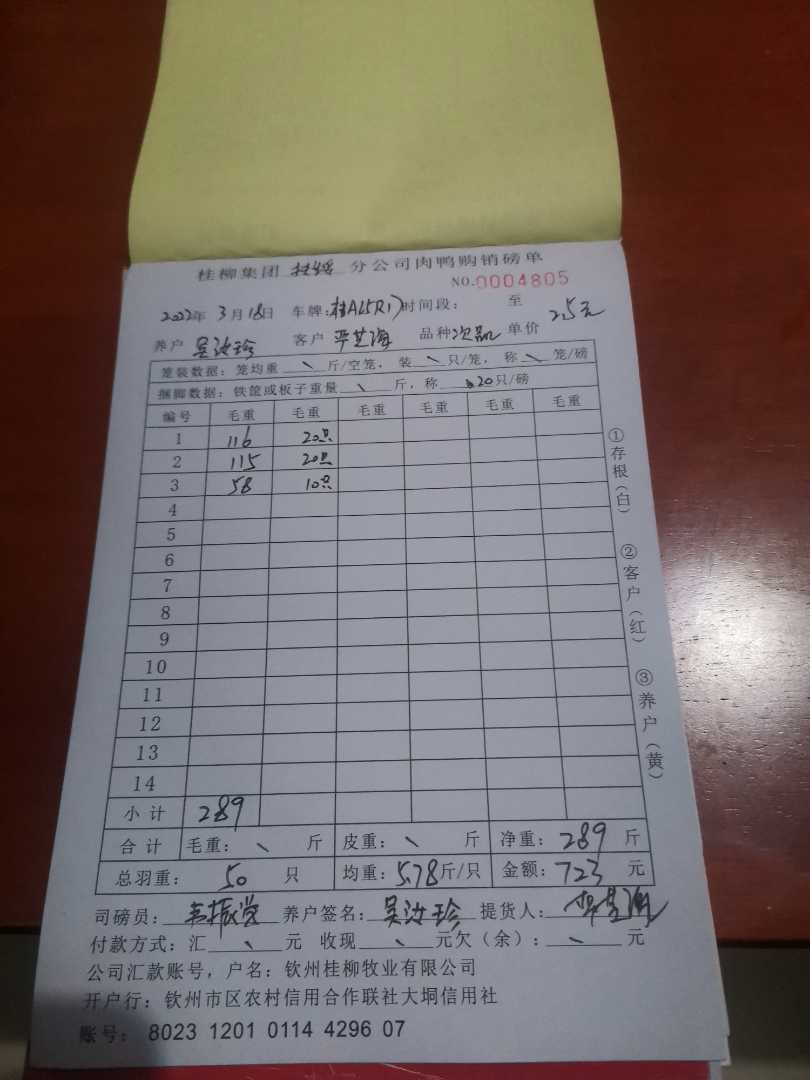 桂柳集团 扶绥 分公司肉鸭购销磅单
NO.0004805
2022年 3月 18日 车牌: 时间段: 至
养户 吴汝珍 客户 品种 次品 单价 2.5元
笼装数据: 笼均重 \ 斤/空笼, 装 \ 只/笼, 称 \ 笼/磅
捆脚数据: 铁筐或板子重量 \ 斤, 称 20只/磅
编号 毛重 毛重 毛重 毛重 毛重 毛重
1 116 20只
2 115 20只
3 58 10只
4
5
6
7
8
9
10
11
12
13
14
小计 289
合计 毛重: \ 斤 皮重: \ 斤 净重: 289 斤
总羽重: 50 只 均重: 5.78斤/只 金额: 723 元
司磅员: 韦振党 养户签名: 吴汝珍 提货人:
付款方式: 汇 \ 元 收现 \ 元欠(余): \ 元
公司汇款账号, 户名: 钦州桂柳牧业有限公司
开户行: 钦州市区农村信用合作联社大垌信用社
账号: 8023 1201 0114 4296 07
①存根(白)
②客户(红)
③养户(黄)